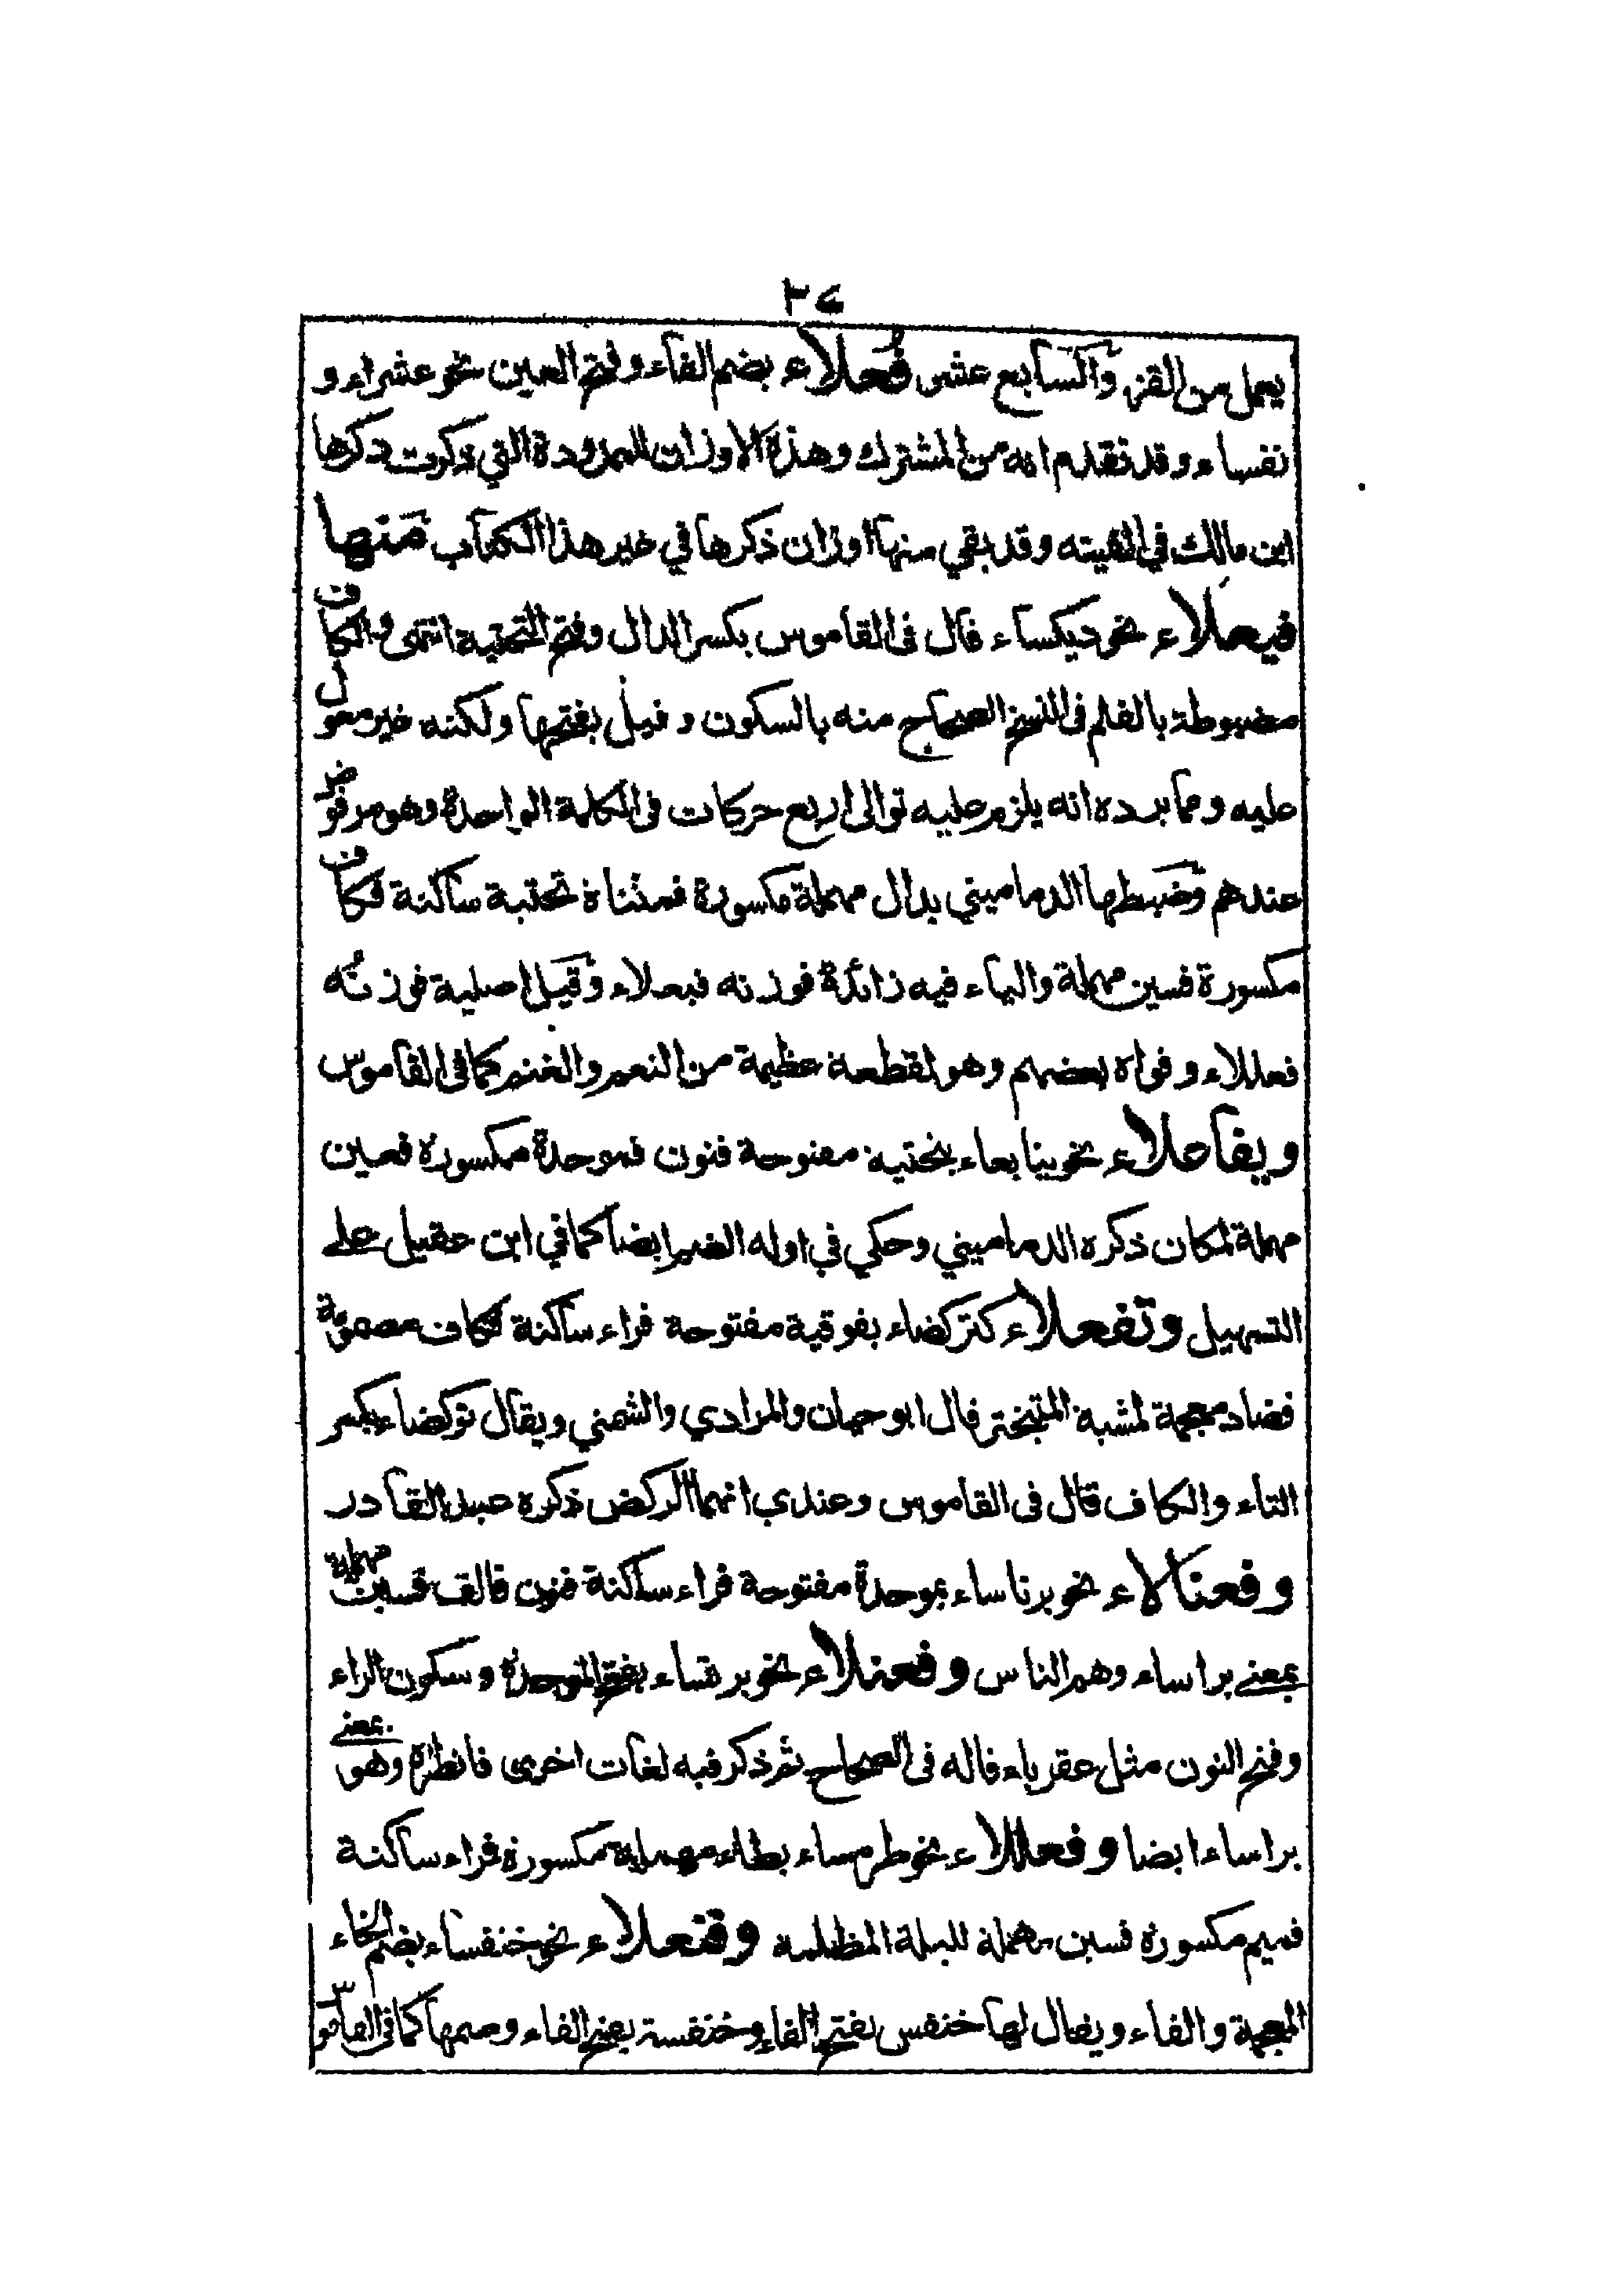 ٣٤
يعمل من القز والسابع عشر فُعلاء بضم الفاء وفتح العين نحو عشراء و
نفساء وقد تقدم انه من المشترك وهذه الاوزان الممدودة التي ذكرت ذكرها
ابن مالك في الفيته وقد بقي منها اوزان ذكرها في غير هذا الكتاب منها
فيعلاء نحو ديكساء قال في القاموس بكسر الدال وفتح التحتية انتهى والكاف
مضبوطة بالقلم في النسخ الصحاح منه بالسكون وقيل بفتحها ولكنه غير معول
عليه ومما يرده انه يلزم عليه توالى اربع حركات في الكلمة الواحدة وهو مرفوض
عندهم وضبطها الدماميني بدال مهملة مكسورة فمثناة تحتية ساكنة فكاف
مكسورة فسين مهملة والياء فيه زائدة فوزنه فيعلاء وقيل اصلية فوزنه
فعللاء وقواه بعضهم وهو لقطعة عظيمة من النعم والغنم كما في القاموس
ويفاعلاء نحو ينابعاء بتحتية مفتوحة فنون فموحدة مكسورة فعين
مهملة لمكان ذكره الدماميني وحكي في اوله الضم ايضا كما في ابن عقيل على
التسهيل وتفعلاء كتركضاء بفوقية مفتوحة فراء ساكنة فكاف مضمومة
فضاد معجمة لمشبة المتبختر قال ابو حيان والمرادي والشمني ويقال تركضاء بكسر
التاء والكاف قال في القاموس وعندي انهما الركض ذكره عبد القادر
وفعنالاء نحو برناساء بموحدة مفتوحة فراء ساكنة فنون فالف فسين مهملة
بمعنى براساء وهم الناس وفعنلاء نحو برنساء بفتح الموحدة وسكون الراء
وفتح النون مثل عقرباء قاله في الصحاح ثم ذكر فيه لغات اخرى فانظره وهو بمعنى
براساء ايضا وفعللاء نحو طرمساء بطاء مهملة مكسورة فراء ساكنة
فميم مكسورة فسين مهملة لليلة المظلمة وفنعلاء نحو خنفساء بضم الخاء
المعجمة والفاء ويقال لها خنفس بفتح الفاء وخنفسة بفتح الفاء وضمها كما في القاموس